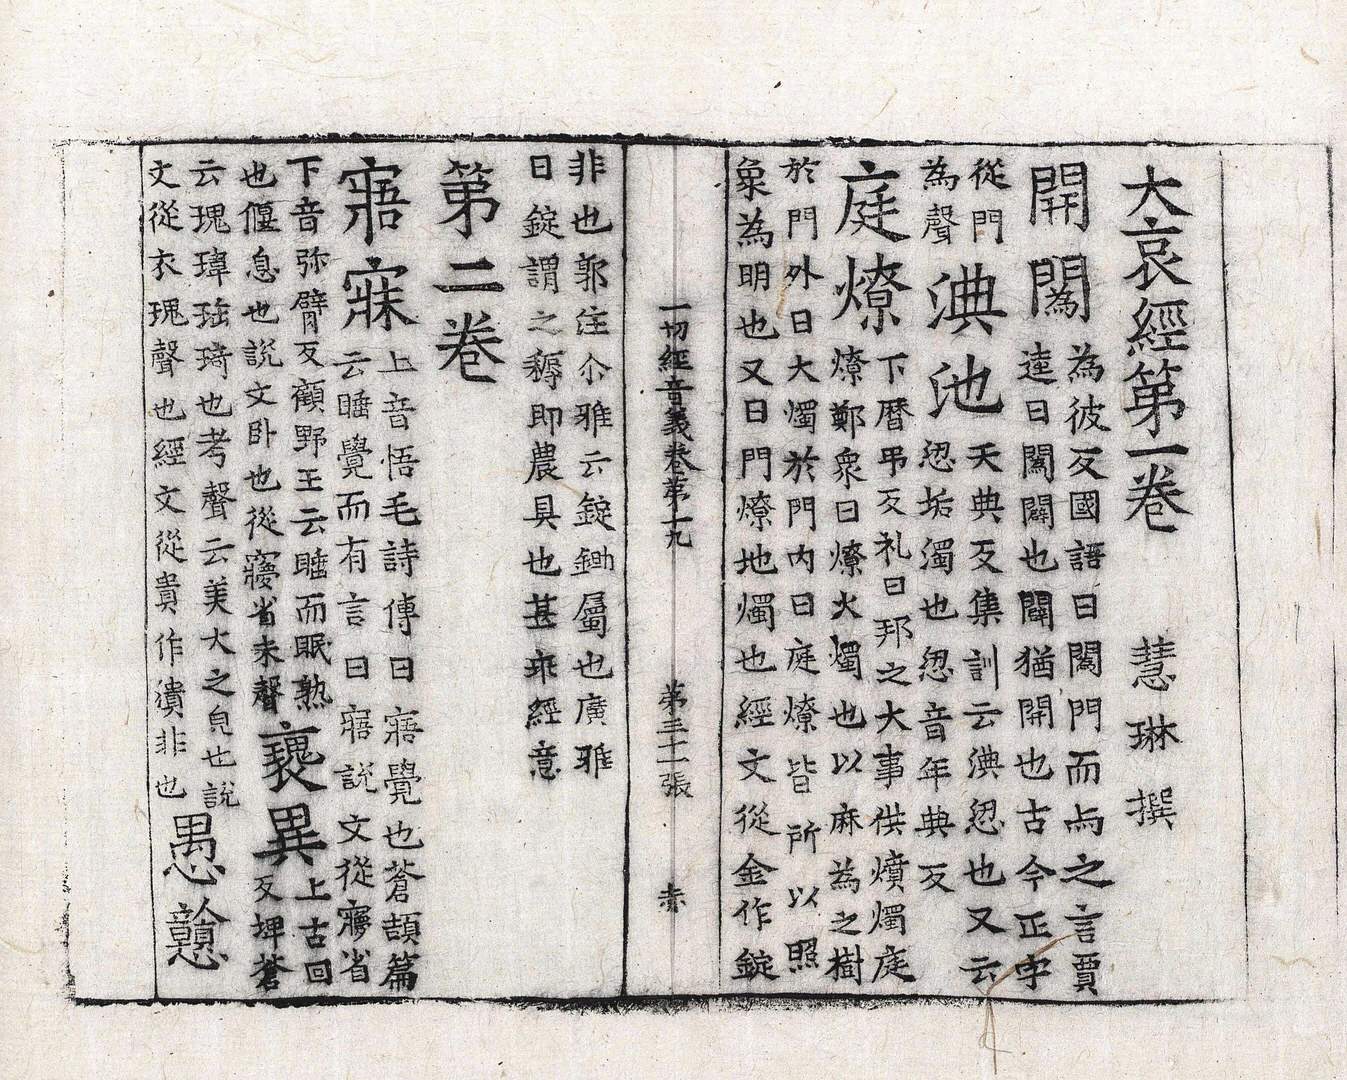 大哀經第一卷　慧琳撰
開闔
為彼反國語曰闔門而与之言賈
逵曰闔闢也闢猶開也古今正字
從門
為聲
淟池
天典反集訓云淟㳷也又云
㳷垢濁也㳷音年典反
庭燎
下曆弔反礼曰邦之大事供燌燭庭
燎鄭衆曰燎火燭也以麻為之樹
於門外曰大燭於門内曰庭燎皆所以照
衆為明也又曰門燎地燭也經文從金作錠
一切經音義卷第十九　第三十一張　赤
非也郭注尒雅云錠鋤屬也廣雅
曰錠謂之耨即農具也甚乖經意
第二卷
寤寐
上音悟毛詩傳曰寤覺也蒼頡篇
云睡覺而有言曰寤說文從㝱省
下音弥臂反顧野王云睡而眠熟
也偃息也說文卧也從㝱省未聲
褢異
上古回
反埤蒼
云瑰瑋珤琦也考聲云美大之皃也說
文從衣瑰聲也經文從貴作潰非也
愚戇